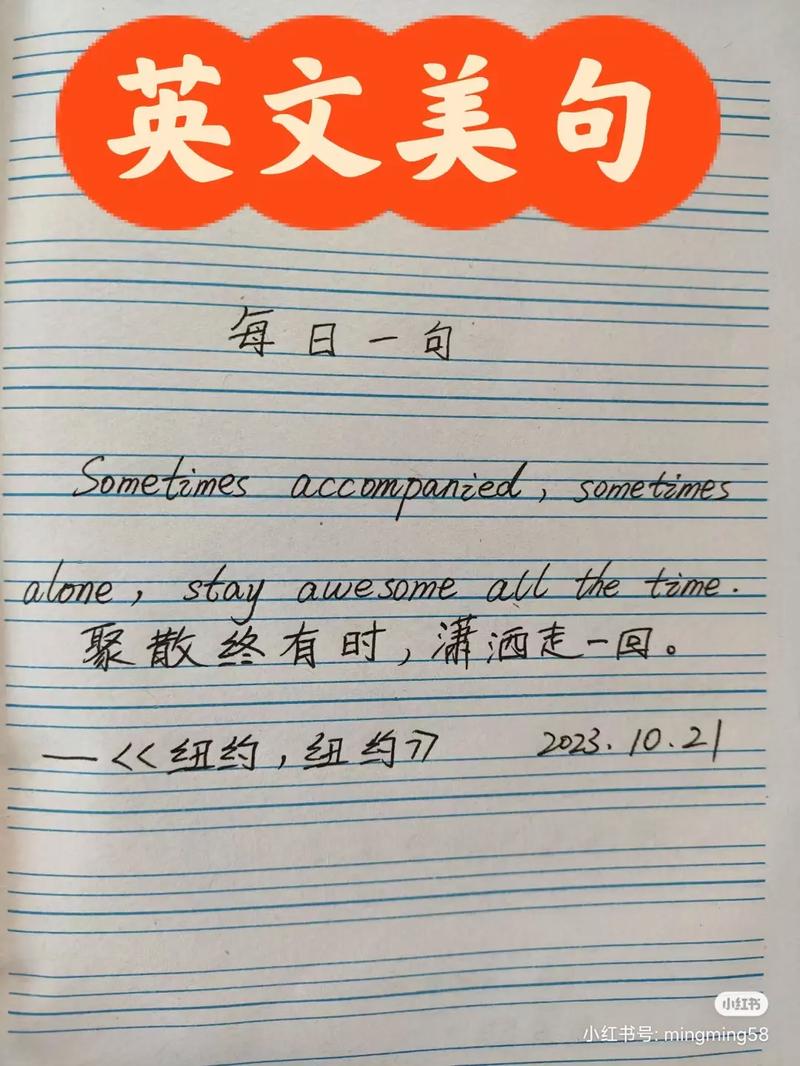 英文美句
每日一句
Sometimes accompanied, sometimes
alone, stay awesome all the time.
聚散终有时,潇洒走一回。
—<<纽约,纽约>> 2023.10.21
小红书
小红书号: mingming58